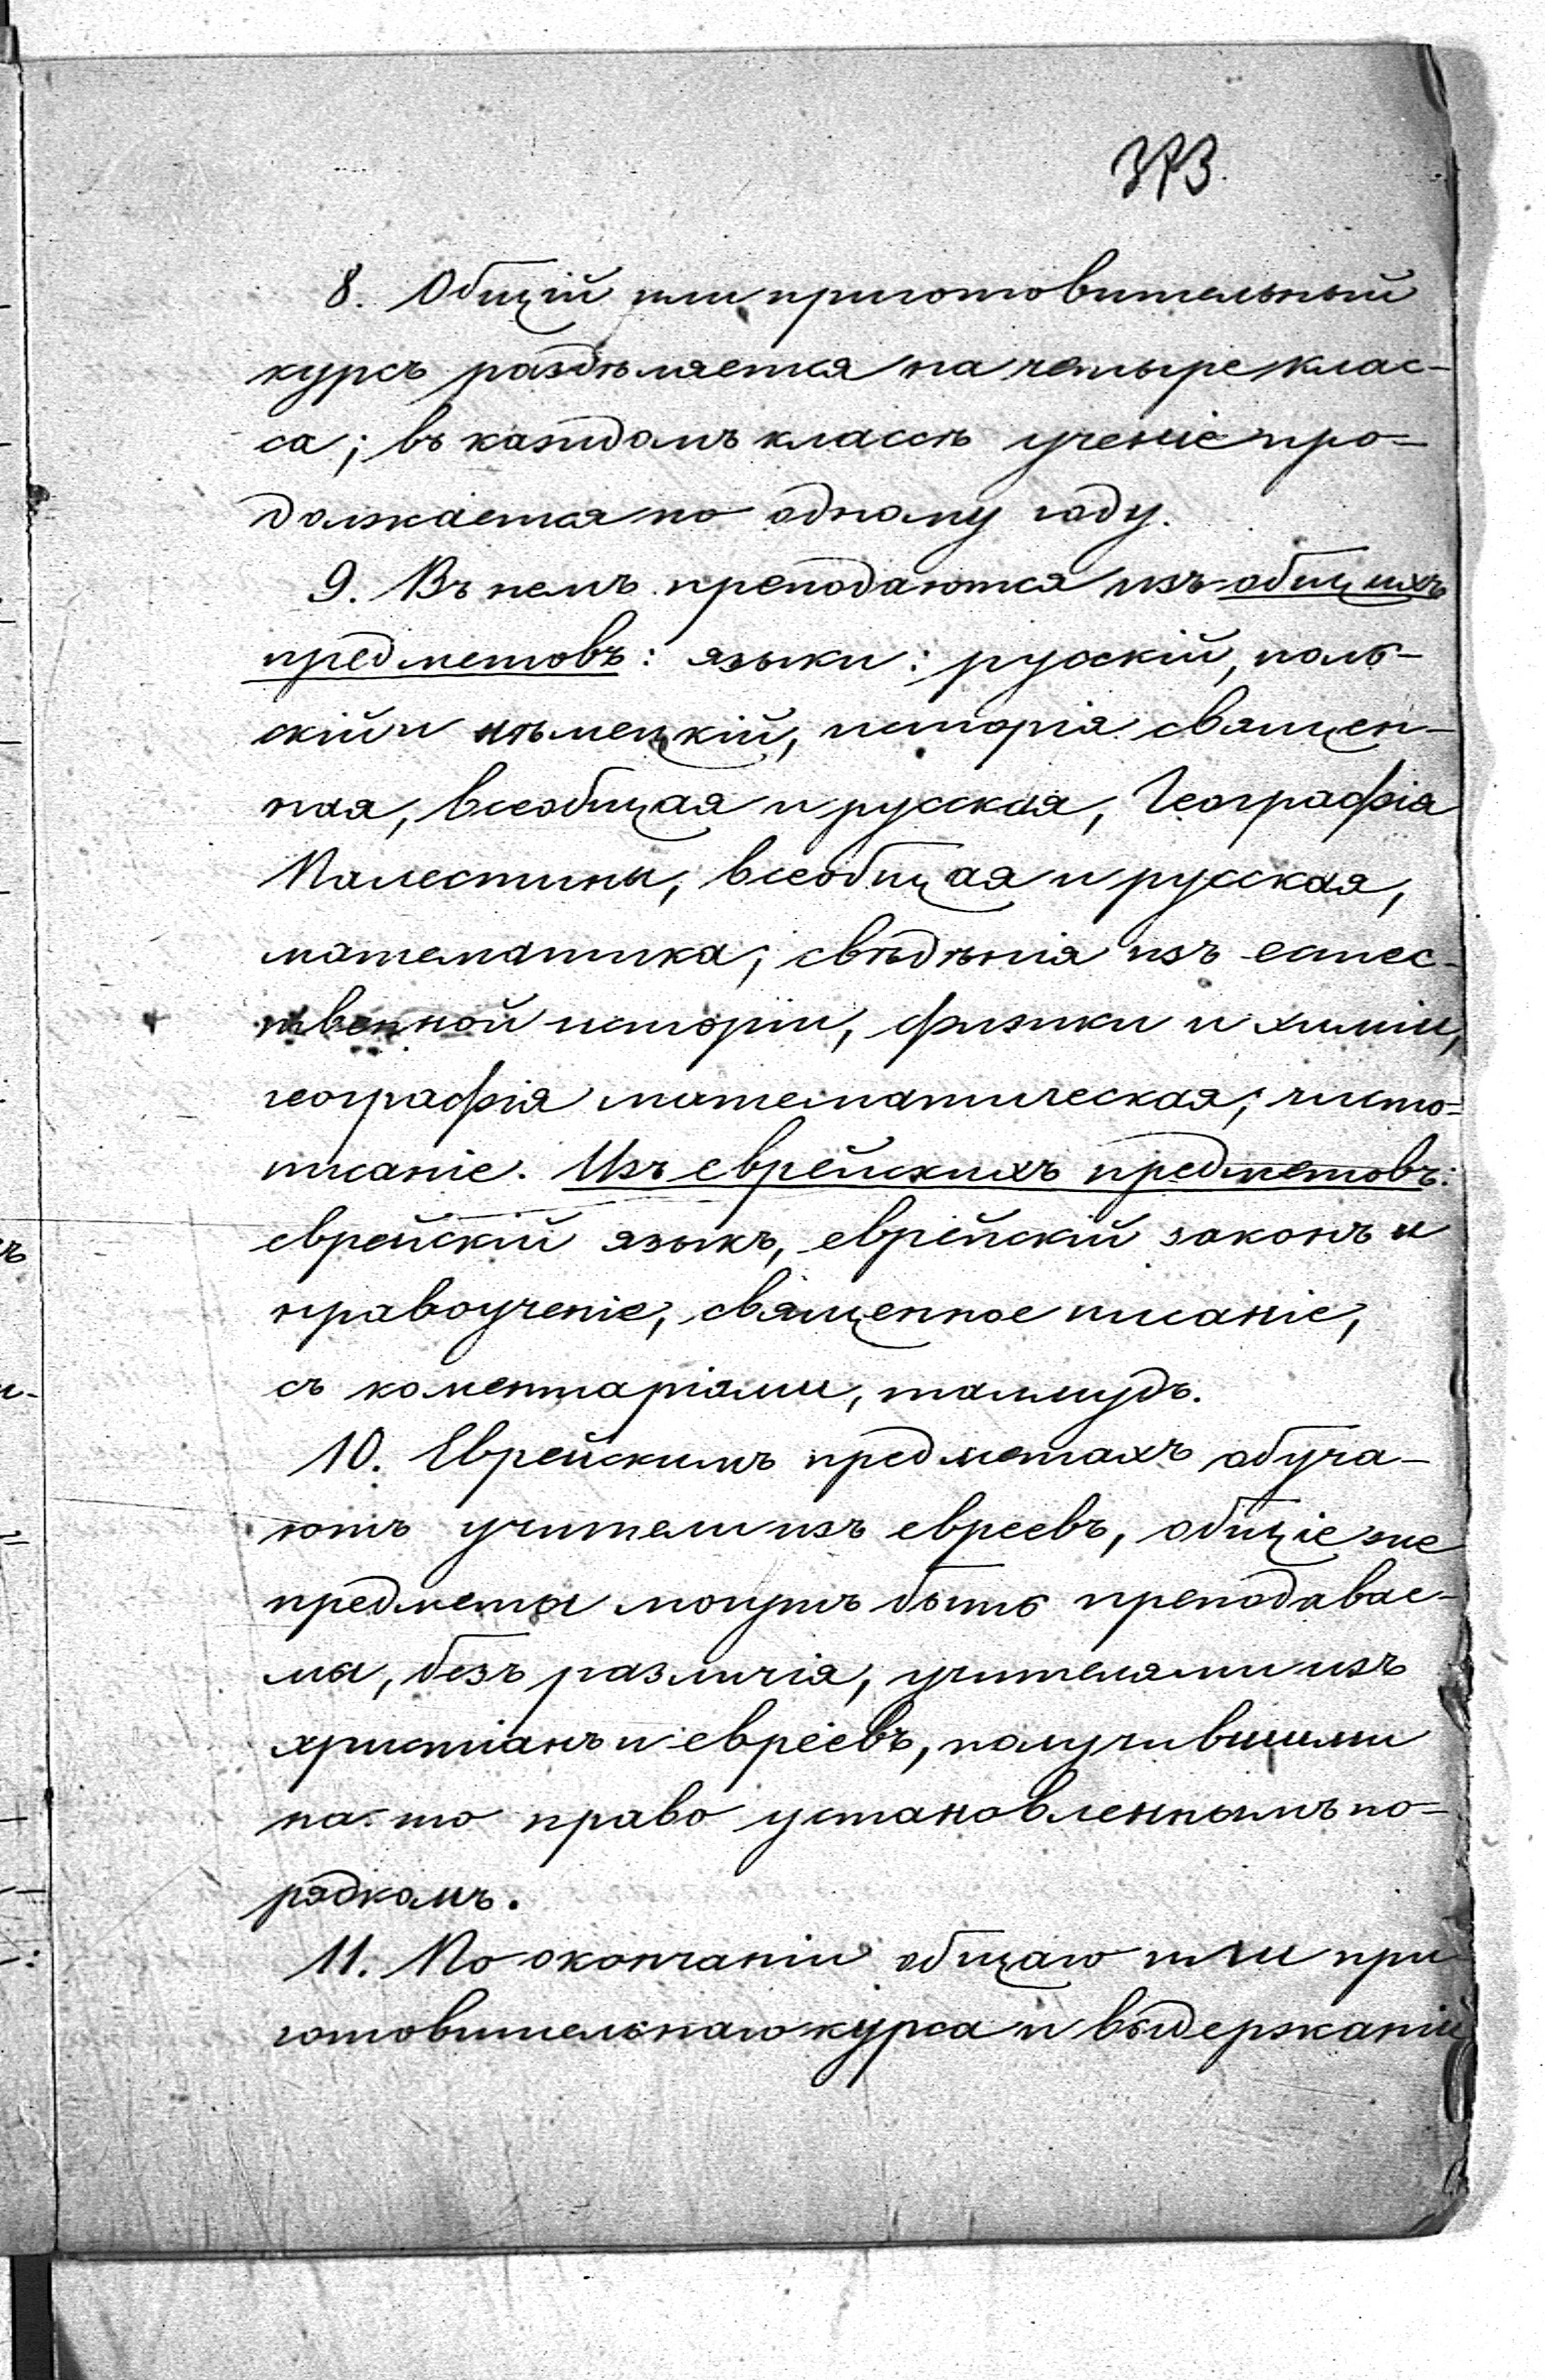 373.
8. Общій или приготовительный
курсъ раздѣляется на четыре клас-
са; въ каждомъ классѣ ученіе про-
должается по одному году.
9. Въ немъ преподаются изъ общихъ
предметовъ: языки: русскій, поль-
скій и нѣмецкій, исторія священ-
ная, всеобщая и русская, Географія
Палестины, всеобщая и русская,
математика; свѣдѣнія изъ естес-
твенной исторіи, физики и химіи,
географія математическая; чисто-
писаніе. Изъ еврейскихъ предметовъ:
еврейскій языкъ, еврейскій законъ и
нравоученіе, священное писаніе,
съ коментаріями, талмудъ.
10. Еврейскимъ предметахъ обуча-
ютъ учители изъ евреевъ, общіе же
предметы могутъ быть преподавае-
мы, безъ различія, учителями изъ
христіанъ и евреевъ, получившими
на то право установленнымъ по-
рядкомъ.
11. По окончаніи общаго или при
готовительнаго курса и выдержаніи